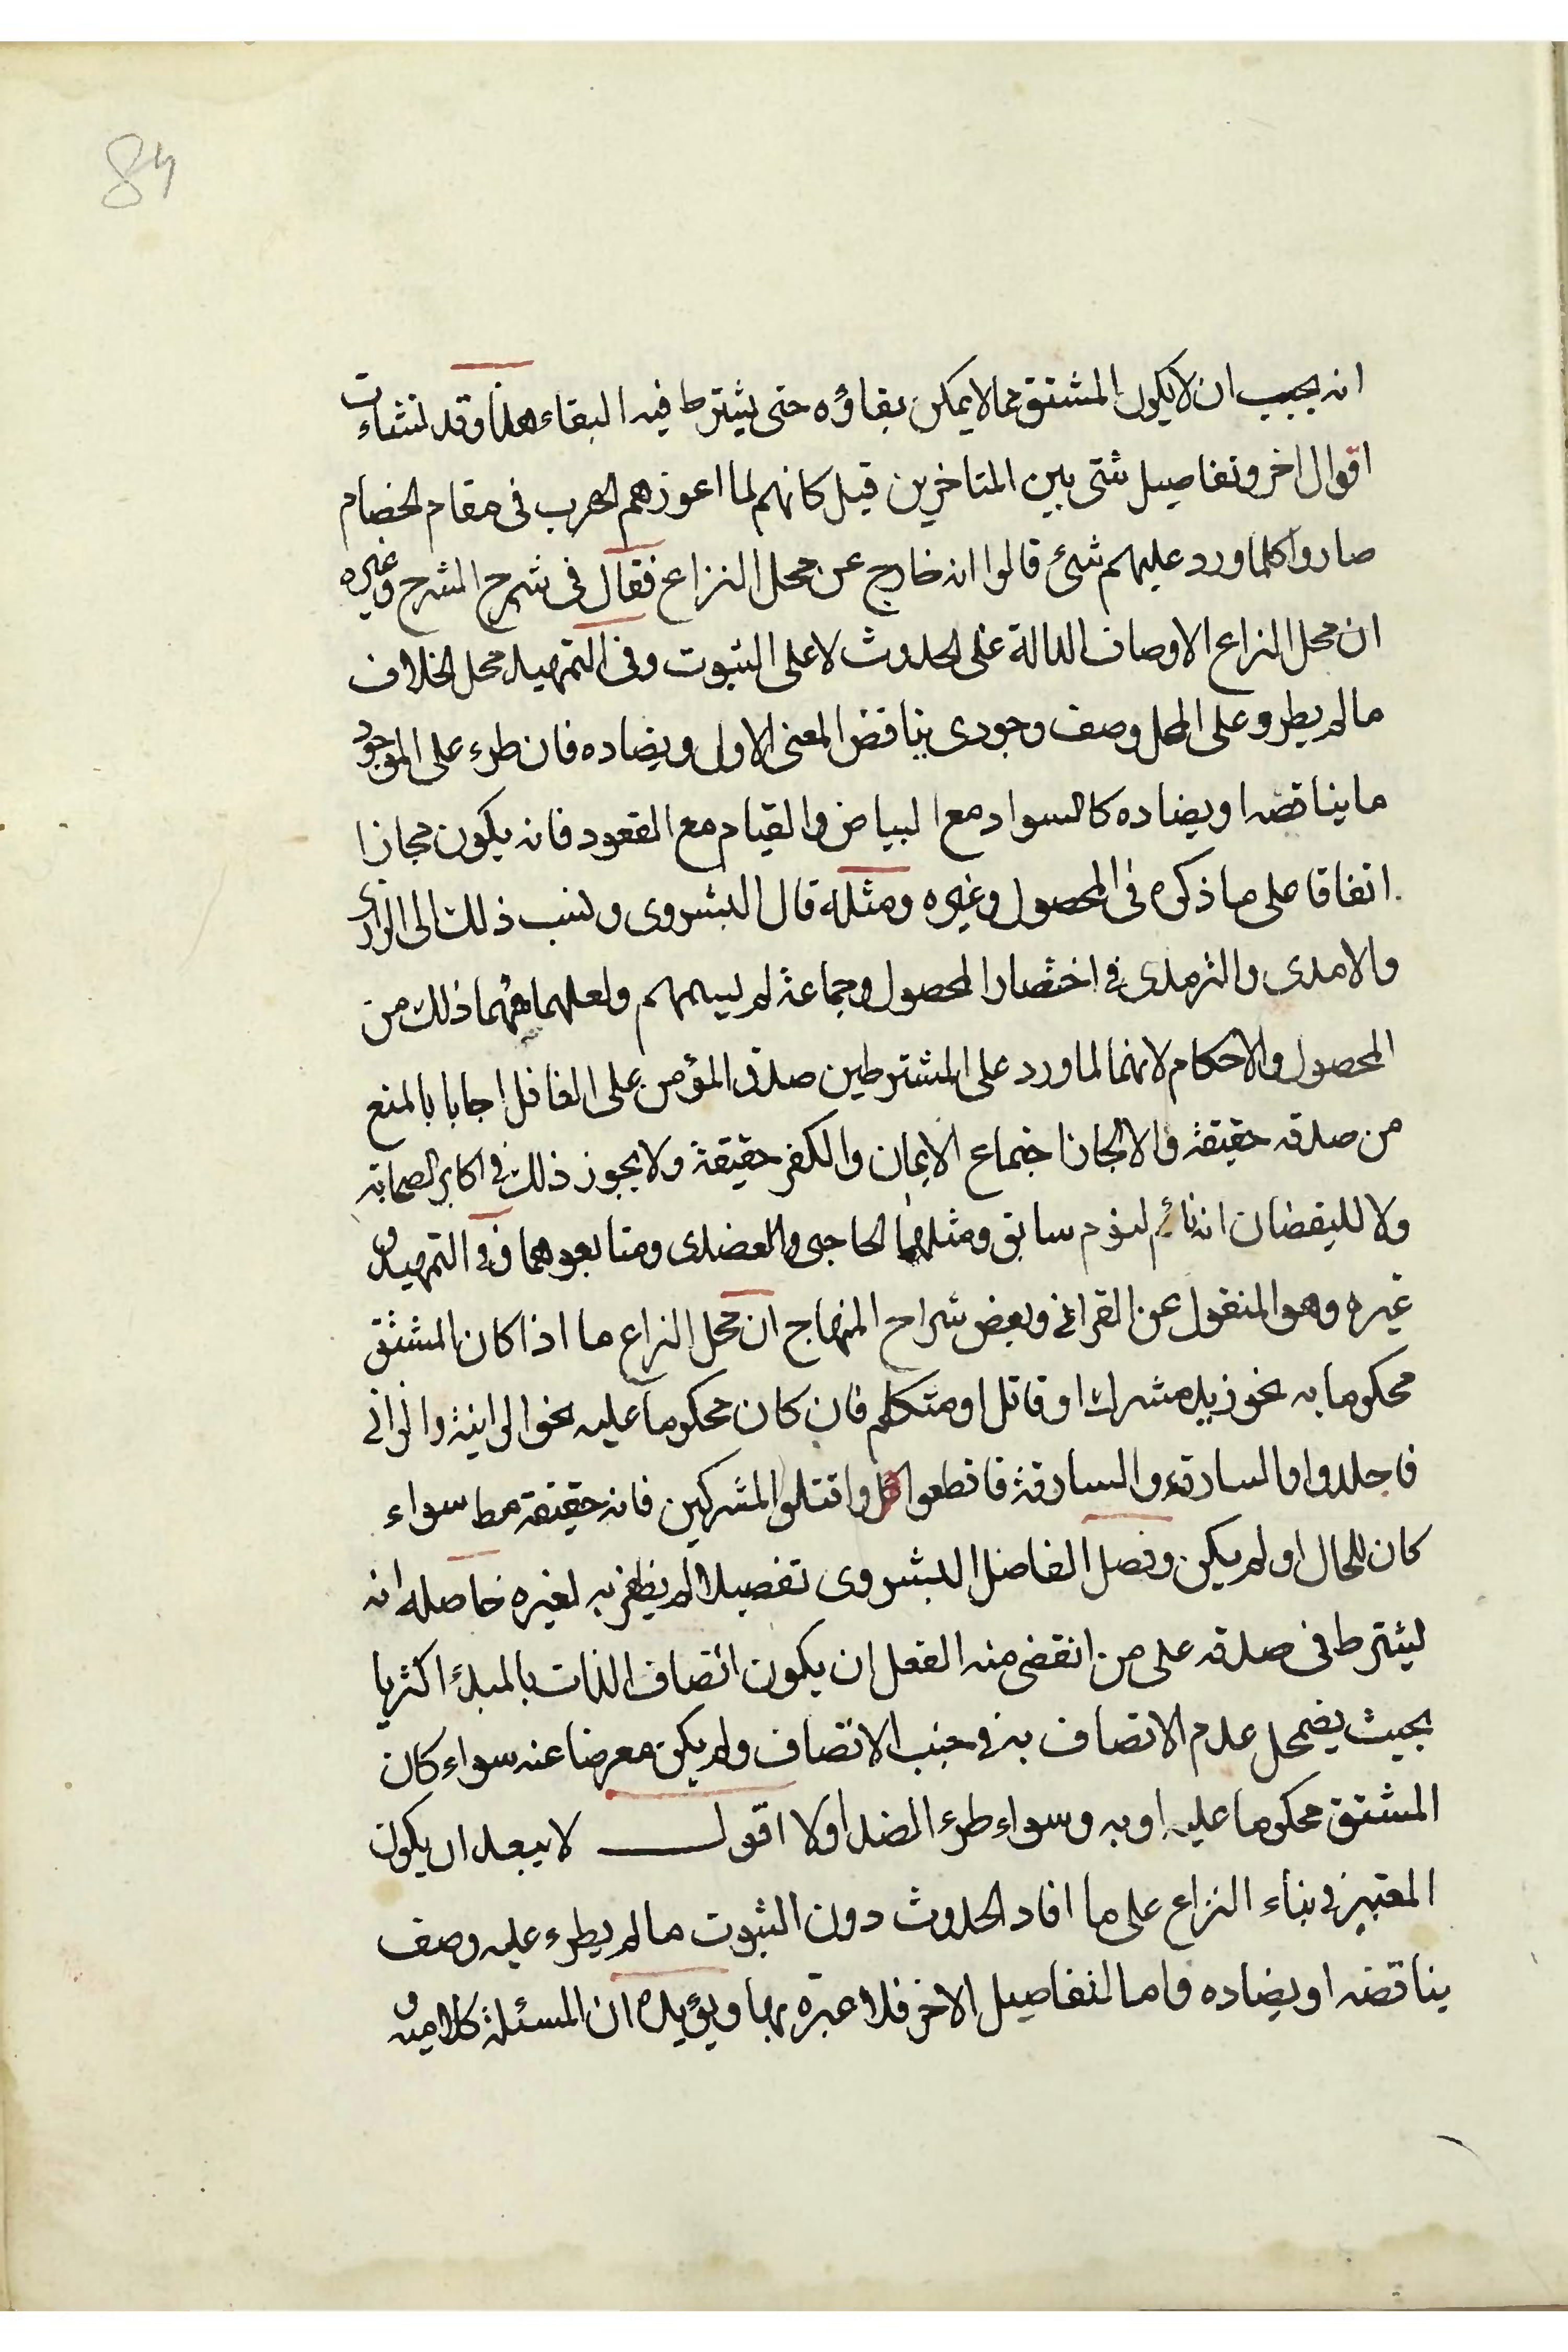 84
انه يجب ان لا يكون المشتق مما لا يمكن بقاؤه حتى يشترط فيه البقاء هذا وقد نشئات
اقوال اخر وتفاصيل شتى بين المتاخرين قيل كانهم لما اعوزهم الهرب فى مقام الخصام
صاروا كلما ورد عليهم شئ قالوا انه خارج عن محل النزاع فقال فى شرح الشرح وغيره
ان محل النزاع الاوصاف الدالة على الحدوث لا على الثبوت وفى التمهيد محل الخلاف
ما لم يطرو على المحل وصف وجودى يناقض المعنى الاول ويضاده فان طرء على الموجود
ما يناقضه او يضاده كالسواد مع البياض والقيام مع القعود فانه يكون مجازا
اتفاقا على ما ذكره فى المحصول وغيره ومثله قال البشروى ونسب ذلك الى الرازى
والامدى والترمذى فى اختصار المحصول وجماعة لم يسمهم ولعلهما فهما ذلك من
المحصول والاحكام لانهما لما ورد على المشترطين صدق المؤمن على الغافل اجابا بالمنع
من صدقه حقيقة والا لجاز اجتماع الايمان والكفر حقيقة ولا يجوز ذلك فى اكابر الصحابة
ولا لليقضان انه نائم لنوم سابق ومثلهما الحاجبى والعضدى ومتابعوهما وفى التمهيد و
غيره وهو المنقول عن القرافى وبعض شراح المنهاج ان محل النزاع ما اذا كان المشتق
محكوما به نحو زيد مشرك او قاتل او متكلم فان كان محكوما عليه نحو الزانية والزانى
فاجلدوا والسارق والسارقة فاقطعوا واقتلوا المشركين فانه حقيقة مط سواء
كان للحال او لم يكن وفصل الفاضل البشروى تفصيلا لم يظفر به لغيره حاصله انه
يشترط فى صدقه على من انقضى منه الفعل ان يكون اتصاف الذات بالمبدء اكثريا
بحيث يضمحل عدم الاتصاف به فى جنب الاتصاف ولم يكن معرضا عنه سواء كان
المشتق محكوما عليه او به وسواء طرء الضد او لا اقول لا يبعد ان يكون
المعتبر فى بناء النزاع على ما افاد الحدوث دون الثبوت ما لم يطرء عليه وصف
يناقضه او يضاده واما التفاصيل الاخر فلا عبرة بها ويؤيده ان المسئلة كلامية و